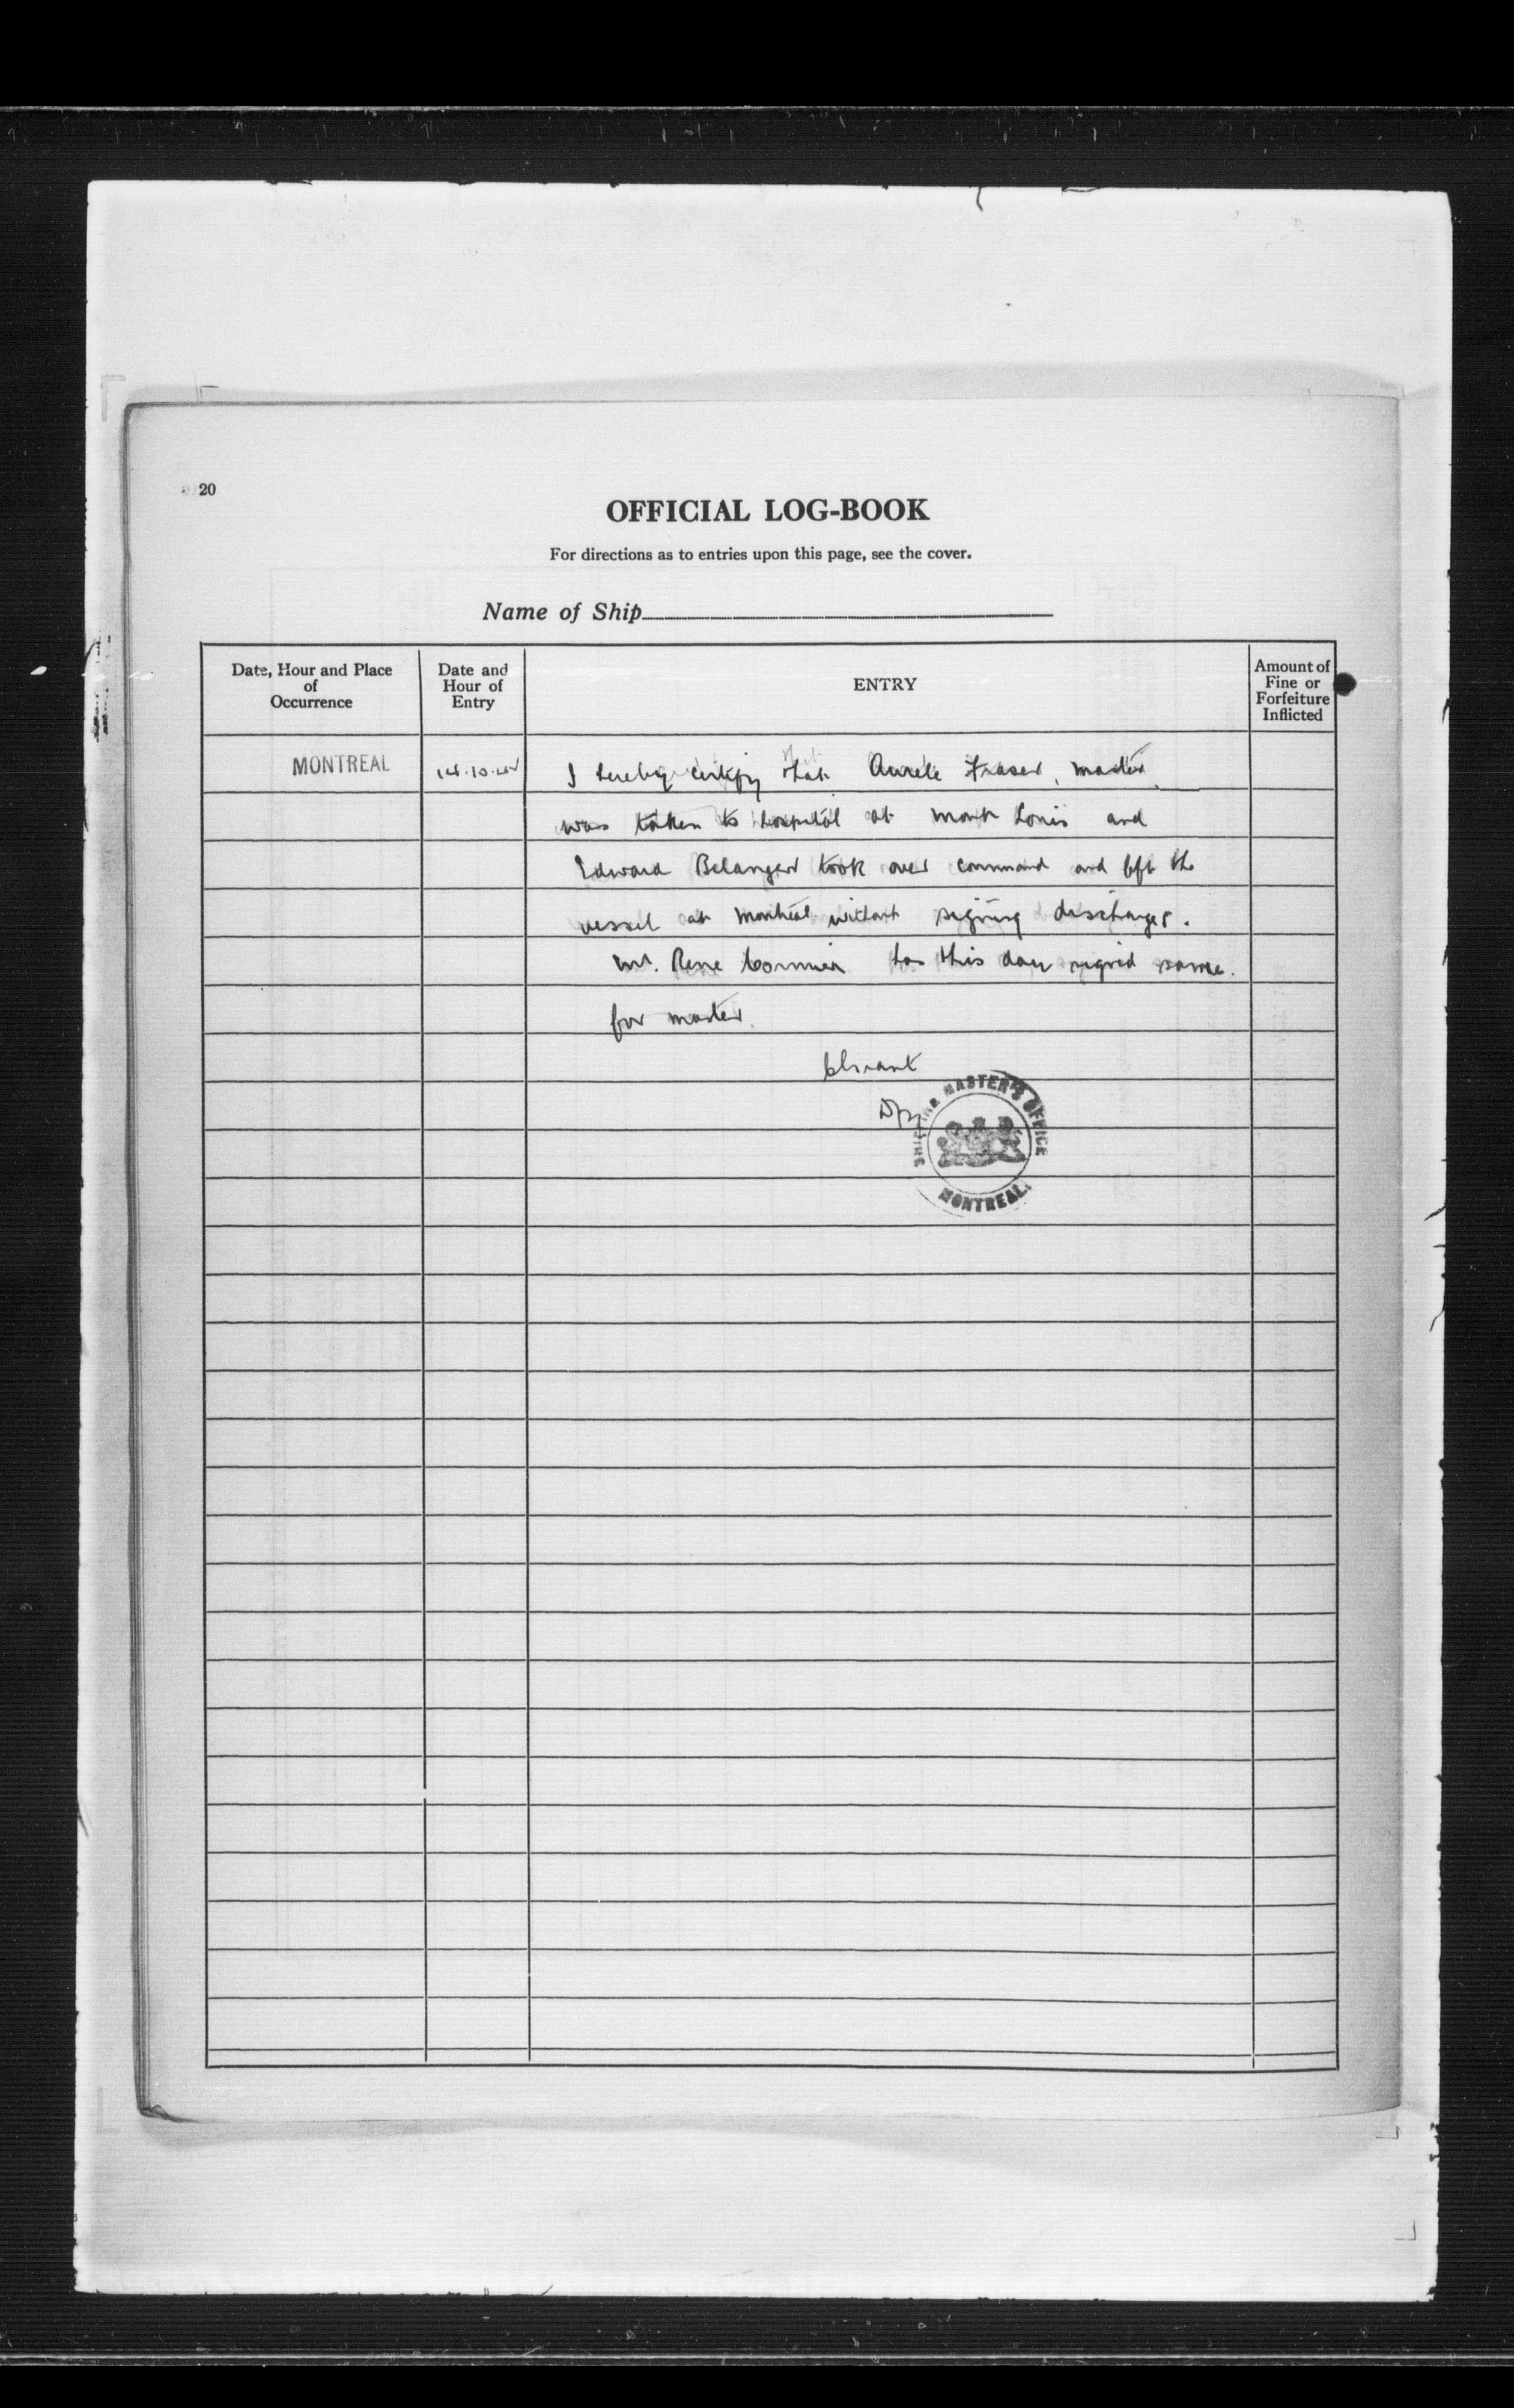 20
OFFICIAL LOG-BOOK
For directions as to entries upon this page, see the cover.
Name of Ship
Date, Hour and Place
of
Occurrence
Date and
Hour of
Entry
ENTRY
Amount of
Fine or
Forfeiture
Inflicted
MONTREAL
I hereby certify that Aurele Fraser, master,
was taken to hospital at Mont Louis and
Edward Belanger took over command and left the
vessel at Montreal without signing discharges.
Mr. Rene Cormier has this day signed same
for master.
SHIPPING MASTER'S OFFICE
MONTREAL.